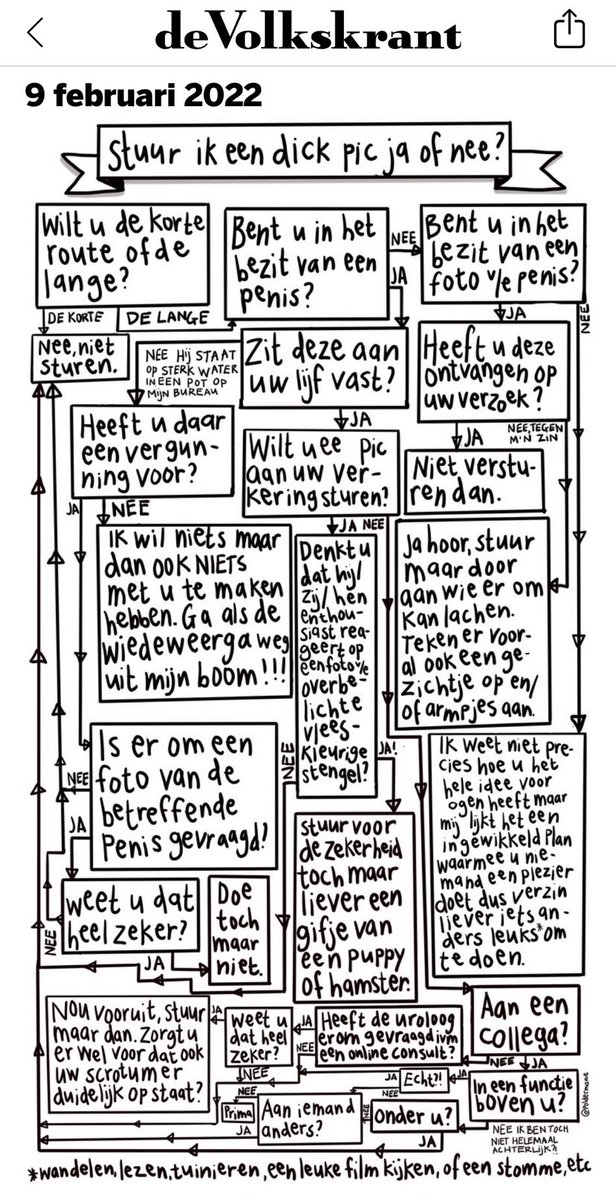 de Volkskrant
9 februari 2022
Stuur ik een dick pic ja of nee?
Wilt u de korte
route of de
lange?
DE KORTE
DE LANGE
Nee, niet
sturen.
Bent u in het
bezit van een
penis?
NEE
JA
Bent u in het
bezit van een
foto v/e penis?
JA
NEE
NEE HIJ STAAT
OP STERK WATER
IN EEN POT OP
MIJN BUREAU
Zit deze aan
uw lijf vast?
JA
Heeft u deze
ontvangen op
uw verzoek?
JA
NEE, TEGEN
M'N ZIN
Heeft u daar
een vergun-
ning voor?
JA
NEE
Wilt u ee pic
aan uw ver-
kering sturen?
JA
NEE
Niet verstu-
ren dan.
Ik wil niets maar
dan ook NIETS
met u te maken
hebben. Ga als de
wiedeweerga weg
uit mijn boom!!!
Denkt u
dat hij/
zij/hen
enthou-
siast rea-
geert op
een foto v/e
overbe-
lichte
vlees-
kleurige
stengel?
NEE
JA!
Ja hoor, stuur
maar door
aan wie er om
kan lachen.
Teken er voor-
al ook een ge-
zichtje op en/
of armpjes aan.
Is er om een
foto van de
betreffende
Penis gevraagd?
NEE
JA
stuur voor
de zekerheid
toch maar
liever een
gifje van
een puppy
of hamster.
Ik weet niet pre-
cies hoe u het
hele idee voor
ogen heeft maar
mij lijkt het een
ingewikkeld plan
waarmee u nie-
mand een plezier
doet dus verzin
liever iets an-
ders leuks* om
te doen.
weet u dat
heel zeker?
NEE
JA
Doe
toch
maar
niet.
Aan een
collega?
NEE
JA
Nou vooruit, stuur
maar dan. Zorgt u
er wel voor dat ook
uw scrotum er
duidelijk op staat?
JA
weet u
dat heel
zeker?
JA
NEE
NEE
Heeft de uroloog
erom gevraagd ivm
een online consult?
In een functie
boven u?
JA
Echt?!
JA
NEE
NEE IK BEN TOCH
NIET HELEMAAL
ACHTERLIJK?!
Onder u?
NEE
JA
Aan iemand
anders?
NEE
JA
Prima
*wandelen, lezen, tuinieren, een leuke film kijken, of een stomme, etc